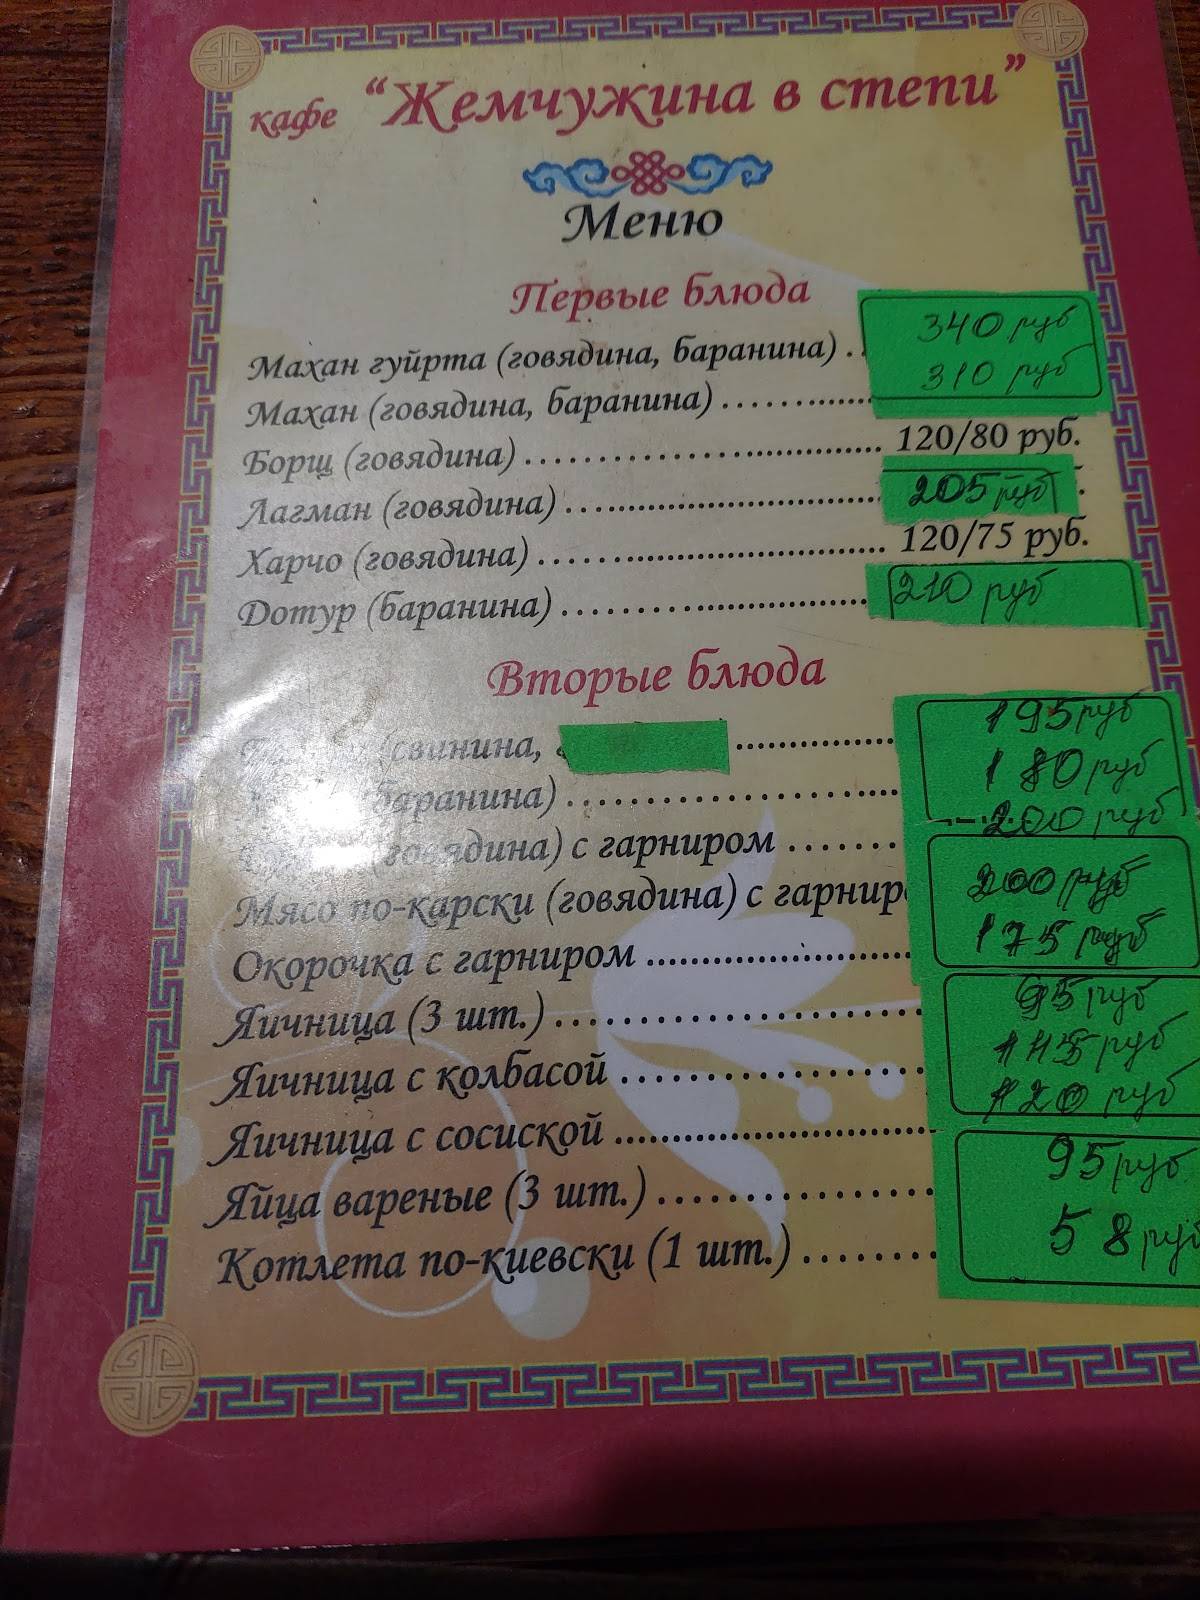 кафе "Жемчужина в степи"
Меню
Первые блюда
Махан гуйрта (говядина, баранина) . 340 руб
Махан (говядина, баранина) ........... 310 руб
Борщ (говядина) ........................ 120/80 руб.
Лагман (говядина) ..................... 205 руб
Харчо (говядина) ....................... 120/75 руб.
Дотур (баранина) ...................... 210 руб
Вторые блюда
(свинина, ............ 195 руб
баранина) ...................... 180 руб
(говядина) с гарниром ........ 200 руб
Мясо по-карски (говядина) с гарниро 200 руб
Окорочка с гарниром ..................... 175 руб
Яичница (3 шт.) ........................ 95 руб
Яичница с колбасой .................... 115 руб
Яичница с сосиской ...................... 120 руб
Яйца вареные (3 шт.) .................. 95 руб
Котлета по-киевски (1 шт.) ........ 58 руб